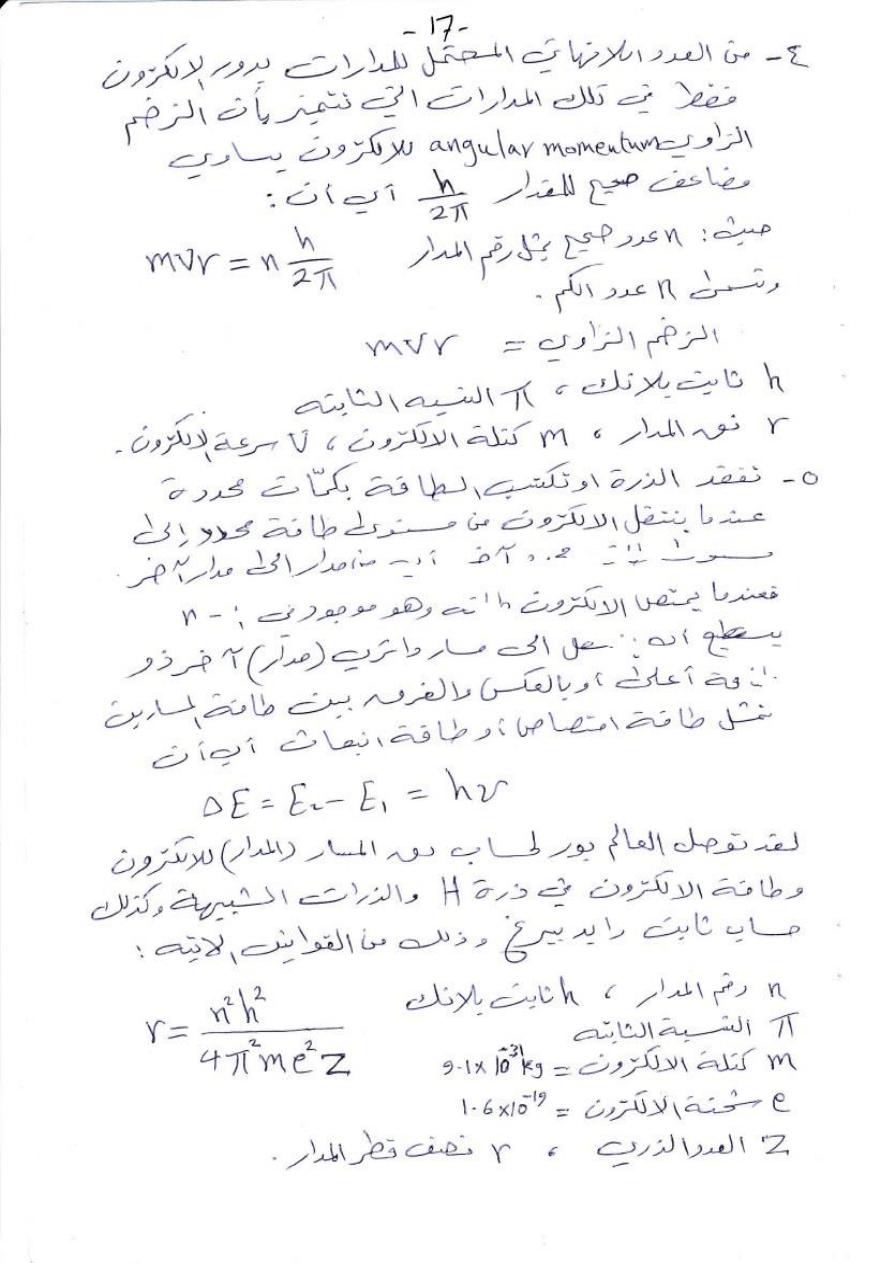 -17-
٤- من العدد اللانهائي المحتمل للمدارات يدور الإلكترون
فقط في تلك المدارات التي تتميز بأن الزخم
الزاوي angular momentum للإلكترون يساوي
مضاعف صحيح للمقدار h/2π أي أن:
حيث: n عدد صحيح يمثل رقم المدار mvr = n h/2π
وتسمى n عدد الكم.
الزخم الزاوي = mvr
h ثابت بلانك ، π النسبه الثابته
r نق المدار ، m كتلة الالكترون ، v سرعة الإلكترون.
٥- تفقد الذرة او تكتسب الطاقة بكمّات محددة
عندما ينتقل الالكترون من مستوى طاقة محدد إلى
آخر أي من مدار الى مدار آخر.
فعندما يمتص الالكترون وهو موجود في n=1
يستطيع الى مسار دائري (مدار) آخر ذو
أعلى أو بالعكس والفرق بين طاقة المسارين
تمثل طاقة امتصاص أو طاقة انبعاث أي أن
ΔE = E₂ - E₁ = hν
لقد توصل العالم بور لحساب نق المسار (المدار) للالكترون
وطاقة الالكترون في ذرة H والذرات الشبيهة وكذلك
حساب ثابت رايدبيرغ وذلك من القوانين الاتيه:
n رقم المدار ، h ثابت بلانك r = n²h²/4π²me²Z
π النسبة الثابته
m كتلة الالكترون = 9.1x10⁻³¹kg
e شحنة الالكترون = 1.6x10⁻¹⁹
Z العدد الذري ، r نصف قطر المدار.